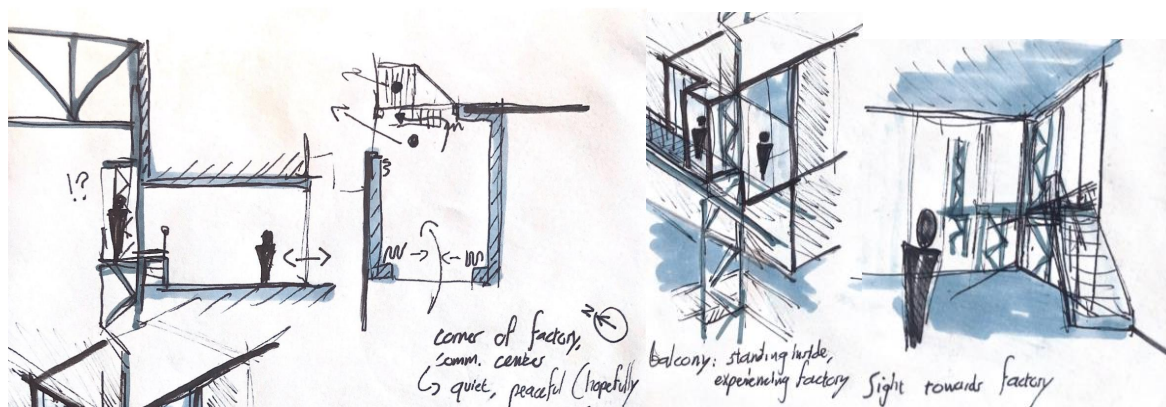 !?
N
corner of factory,
comm. center
↳ quiet, peaceful (hopefully
balcony: standing inside,
experiencing factory
Sight towards factory